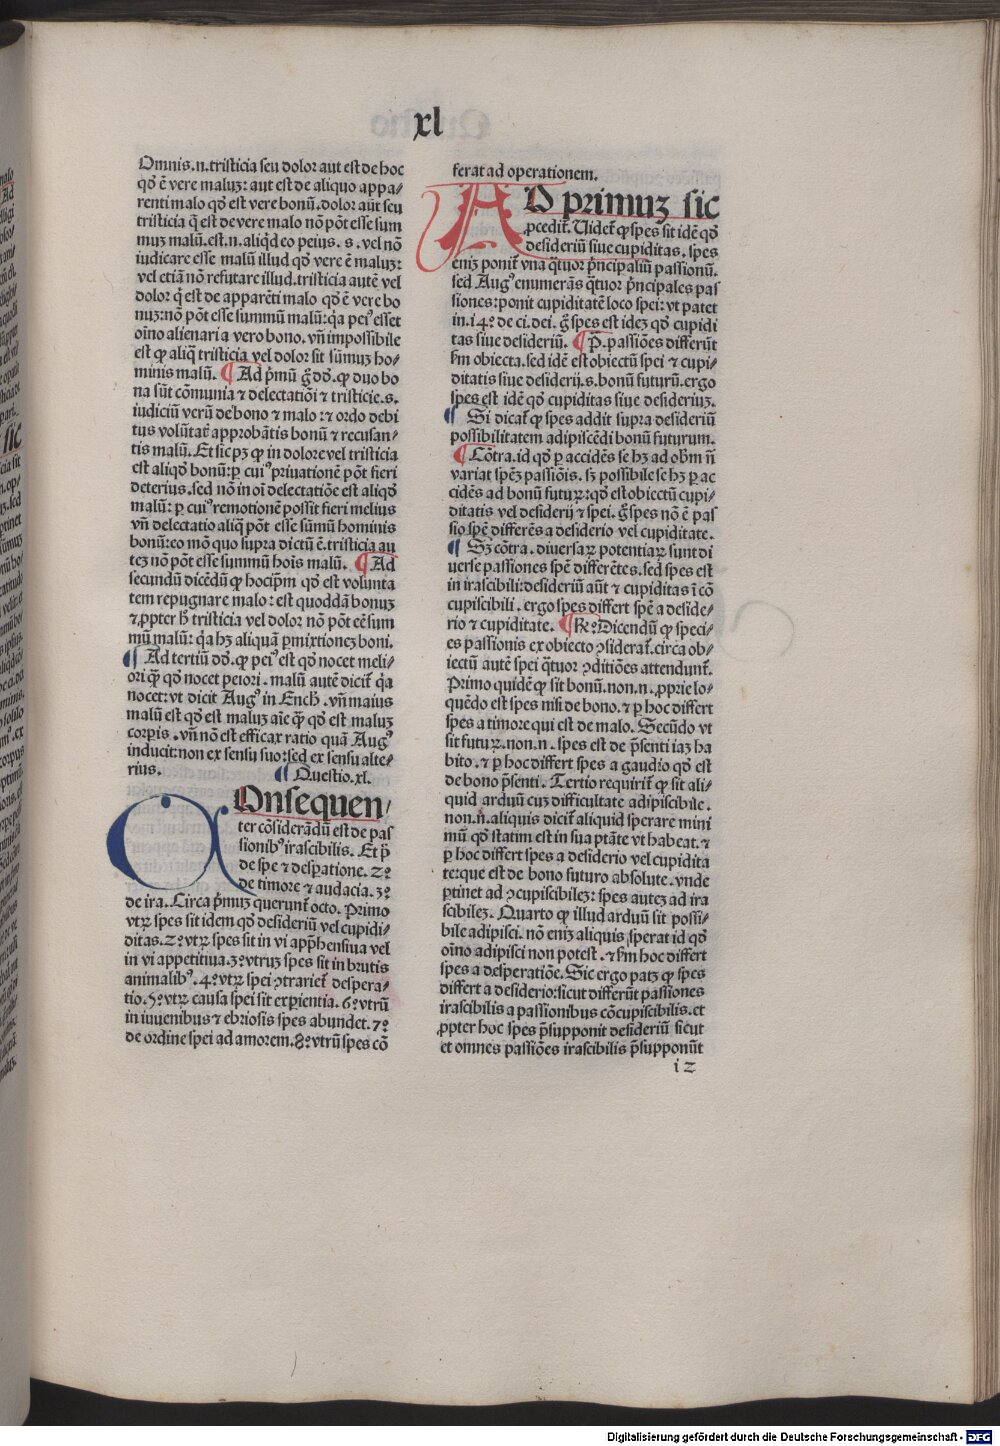 xl
Omnis.n.tristicia seu dolor aut est de hoc
qđ ē vere maluꝫ: aut est de aliquo appa⸗
renti malo qđ est vere bonū. dolor aūt seu
tristicia q̄ est de vere malo nō pōt esse sum
muꝫ malū.est.n.aliqđ eo peius.s.vel nō
iudicare esse malū illud qđ vere ē maluꝫ:
vel etiā nō refutare illud.tristicia autē vel
dolor q̄ est de apparēti malo qđ ē vere bo
nuꝫ:nō pōt esse summū malū:q̇a peiꝰ esset
oīno alienari a vero bono. vn̄ impossibile
est ꝙ aliq̄ tristicia vel dolor sit sūmuꝫ ho⸗
minis malū. ¶ Ad pͥmū g̊ dđ.ꝙ duo bo
na sūt cōmunia ⁊ delectatiōi ⁊ tristicie.s.
iudiciū verū de bono ⁊ malo:⁊ ordo debi
tus volūtat̄ approbātis bonū ⁊ recusan⸗
tis malū. Et sic pꝫ ꝙ in dolore vel tristicia
est aliqđ bonū:ꝑ cuiꝰ priuationē pōt fieri
deterius.sed nō in oī delectatiōe est aliqđ
malū: ꝑ cuiꝰ remotionē possit fieri melius
vn̄ delectatio aliq̄ pōt esse sūmū hominis
bonū:eo mō quo supra dictū ē.tristicia au
teꝫ nō pōt esse summū hoīs malū. ¶ Ad
secundū dicēdū ꝙ hocip̄m qđ est volunta
tem repugnare malo: est quoddā bonuꝫ
⁊ ꝓpter ħ tristicia vel dolor nō pōt eē sum
mū malū: q̇a hꝫ aliquā ꝑmixtioneꝫ boni.
¶ Ad tertiū dđ.ꝙ peiꝰ est qđ nocet meli⸗
ori q̄ꝫ qđ nocet peiori. malū autē dicit̄ q̇a
nocet: vt dicit Augꝰ in Encħ. vn̄ maius
malū est qđ est maluꝫ aīe q̄ꝫ qđ est maluꝫ
corpis. vn̄ nō est efficax ratio quā Augꝰ
inducit:non ex sensu suo:sed ex sensu alte⸗
rius. ¶ Questio.xl.
COnsequen⸗
ter cōsiderādū est de pas
sionibꝰ irascibilis. Et p̊
de spe ⁊ despatione. 2º
de timore ⁊ audacia.3º
de ira. Circa pͥmuꝫ querunt̄ octo. Primo
vtꝝ spes sit idem qđ desideriū vel cupidi⸗
ditas.2º vtꝝ spes sit in vi app̄hensiua vel
in vi appetitiua.3º vtruꝫ spes sit in brutis
animalibꝰ.4º vtꝝ spei ꝯtrariet̄ despera⸗
tio.5º vtꝝ causa spei sit exꝑientia. 6º vtrū
in iuuenibus ⁊ ebriosis spes abundet.7º
de ordine spei ad amorem.8º vtrū spes cō
ferat ad operationem.
AD primuꝫ sic
ꝓcedit̄. Uidet̄ ꝙ spes sit idē qđ
desideriū siue cupiditas. spes
eniꝫ ponit̄ vna q̇tuor pͥncipaliū passionū.
sed Augꝰ enumerās q̇tuor pͥncipales pas
siones: ponit cupiditatē loco spei: vt patet
in.14º de ci.dei. g̊ spes est ideꝫ qđ cupidi
tas siue desideriū. ¶ P̄. passiōes differūt
ẜm obiecta. sed idē est obiectū spei ⁊ cupi⸗
ditatis siue desiderij.s.bonū futurū.ergo
spes est idē qđ cupiditas siue desideriuꝫ.
¶ Si dicat̄ ꝙ spes addit supra desideriū
possibilitatem adipiscēdi bonū futurum.
¶ Cōtra.id qđ ꝑ accidēs se hꝫ ad obīm nō
variat spēꝫ passiōis. sꝫ possibile se hꝫ ꝑ ac
cidēs ad bonū futuꝝ:qđ est obiectū cupi⸗
ditatis vel desiderij ⁊ spei. g̊ spes nō ē pas
sio spē differēs a desiderio vel cupiditate.
¶ Sꝫ cōtra. diuersaꝝ potentiaꝝ sunt di
uerse passiones spē differētes. sed spes est
in irascibili:desideriū aūt ⁊ cupiditas ī cō
cupiscibili. ergo spes differt spē a deside⸗
rio ⁊ cupiditate. ¶ Rº. Dicendū ꝙ speci⸗
es passionis ex obiecto ꝯsiderat̄. circa ob⸗
iectū autē spei q̇tuor ꝯditiōes attendunt̄.
Primo quidē ꝙ sit bonū.non.n.ꝓprie lo⸗
quēdo est spes nisi de bono. ⁊ ꝑ hoc differt
spes a timore qui est de malo. Secūdo vt
sit futuꝝ.non.n. spes est de p̄senti iaꝫ ha
bito. ⁊ ꝑ hoc differt spes a gaudio qđ est
de bono p̄senti. Tertio requirit̄ ꝙ sit ali⸗
quid arduū cuꝫ difficultate adipiscibile.
non.n̄.aliquis dicit̄ aliquid sperare mini
mū qđ statim est in sua ptāte vt habeat. ⁊
ꝑ hoc differt spes a desiderio vel cupidita
te:que est de bono futuro absolute. vnde
ꝑtinet ad ꝯcupiscibileꝫ: spes auteꝫ ad ira
scibileꝫ. Quarto ꝙ illud arduū sit possi⸗
bile adipisci. nō eniꝫ aliquis sperat id qđ
oīno adipisci non potest. ⁊ ẜm hoc differt
spes a desperatiōe. Sic ergo patꝫ ꝙ spes
differt a desiderio:sicut differūt passiones
irascibilis a passionibus cōcupiscibilis.et
ꝓpter hoc spes p̄supponit desideriū sicut
et omnes passiōes irascibilis p̄supponūt
i 2
Digitalisierung gefördert durch die Deutsche Forschungsgemeinschaft - DFG